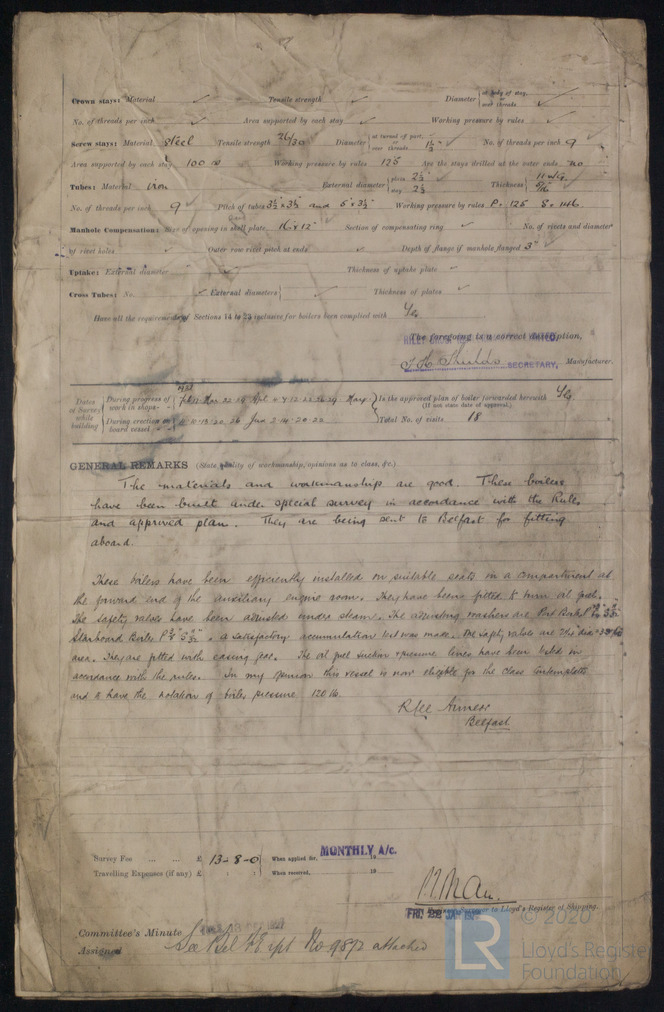 Crown stays: Material ✓ Tensile strength ✓ Diameter { at body of stay, or over threads ✓
No. of threads per inch ✓ Area supported by each stay ✓ Working pressure by rules ✓
Screw stays: Material Steel Tensile strength 26/30 Diameter { at turned off part, or over threads 1½" No. of threads per inch 9
Area supported by each stay 100 Working pressure by rules 125 Are the stays drilled at the outer ends no
Tubes: Material Iron External diameter { plain 2½" stay 2½" Thickness { 11 WG 5/16
No. of threads per inch 9 Pitch of tubes 3½" × 3½" and 5" × 3½" Working pressure by rules P. 125 S. 146
Manhole Compensation: Size of opening in shell plate 16" × 12" Section of compensating ring ✓ No. of rivets and diameter
of rivet holes ✓ Outer row rivet pitch at ends ✓ Depth of flange if manhole flanged 3"
Uptake: External diameter ✓ Thickness of uptake plate ✓
Cross Tubes: No. ✓ External diameters { ✓ Thickness of plates ✓
Have all the requirements of Sections 14 to 22 inclusive for boilers been complied with Yes
The foregoing is a correct description,
SECRETARY, Manufacturer.
Dates of Survey while building { During progress of work in shops - -
During erection on board vessel - - -
Is the approved plan of boiler forwarded herewith Yes
(If not state date of approval.)
Total No. of visits 18
GENERAL REMARKS (State quality of workmanship, opinions as to class, &c.)
The materials and workmanship are good. These boilers
have been built under special survey in accordance with the Rules
and approved plan. They are being sent to Belfast for fitting
aboard.
These boilers have been efficiently installed on suitable seats in a compartment at
the forward end of the auxiliary engine room. They have been fitted to burn oil fuel.
The safety valves have been adjusted under steam. The adjusting washers are Port Boiler
Starboard Boiler a satisfactory accumulation test was made. The safety valves are
area. They are fitted with easing gear. The oil fuel suction & pressure lines have been tested in
accordance with the rules. In my opinion this vessel is now eligible for the class contemplated
and to have the notation of boiler pressure 120 lb.
R Lee
Belfast
Survey Fee ... ... £ 13-8-0 When applied for, MONTHLY A/c. 19
Travelling Expenses (if any) £ : : When received, 19
Surveyor to Lloyd's Register of Shipping.
Committee's Minute
Assigned See Bel. F.E. rpt No 9872 attached
LR © 2020
Lloyd's Register
Foundation